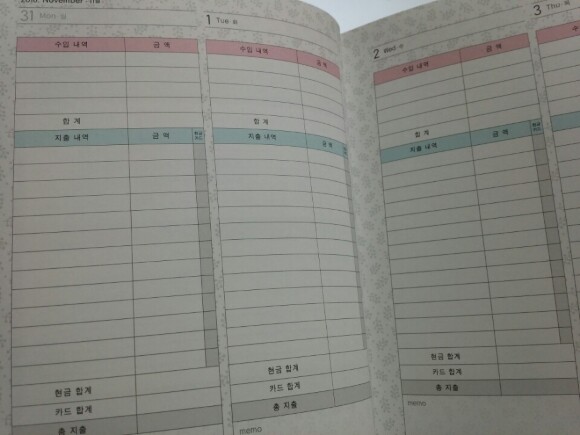 2016. November · 11월
31 Mon · 월
수입 내역 금 액
합 계
지출 내역 금 액 현금 카드
현금 합계
카드 합계
총 지출
1 Tue 화
수입 내역 금액
합 계
지출 내역 금액
현금 합계
카드 합계
총 지출
memo
2 Wed 수
수입 내역 금 액
합 계
지출 내역 금 액 현금 카드
현금 합계
카드 합계
총 지출
memo
3 Thu · 목